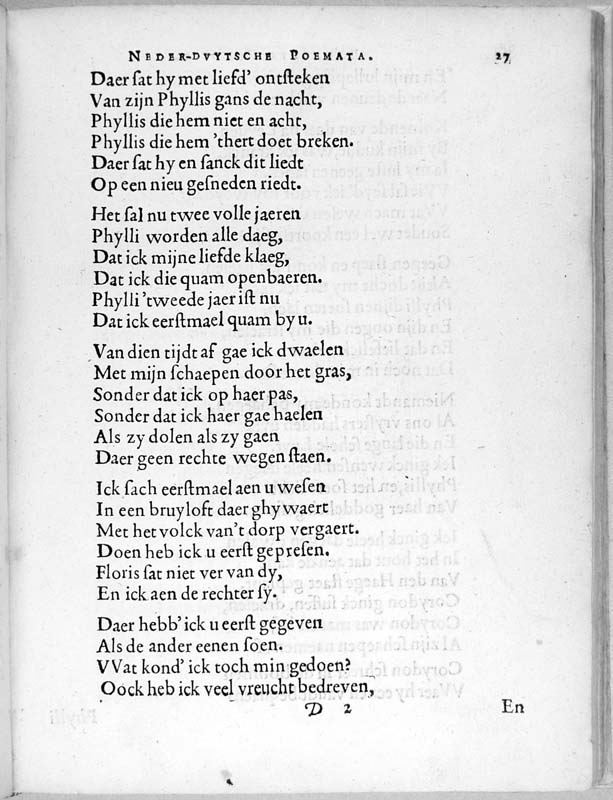 NEDER-DVYTSCHE POEMATA. 27
Daer ſat hy met liefd' ontſteken
Van zijn Phyllis gans de nacht,
Phyllis die hem niet en acht,
Phyllis die hem 'thert doet breken.
Daer ſat hy en ſanck dit liedt
Op een nieu geſneden riedt.
Het ſal nu twee volle jaeren
Phylli worden alle daeg,
Dat ick mijne liefde klaeg,
Dat ick die quam openbaeren.
Phylli 'tweede jaer iſt nu
Dat ick eerſtmael quam by u.
Van dien tijdt af gae ick dwaelen
Met mijn ſchaepen door het gras,
Sonder dat ick op haer pas,
Sonder dat ick haer gae haelen
Als zy dolen als zy gaen
Daer geen rechte wegen ſtaen.
Ick ſach eerſtmael aen u weſen
In een bruyloft daer ghy waert
Met het volck van't dorp vergaert.
Doen heb ick u eerſt gepreſen.
Floris ſat niet ver van dy,
En ick aen de rechter ſy.
Daer hebb' ick u eerſt gegeven
Als de ander eenen ſoen.
VVat kond' ick toch min gedoen?
Oock heb ick veel vreucht bedreven,
D 2 En